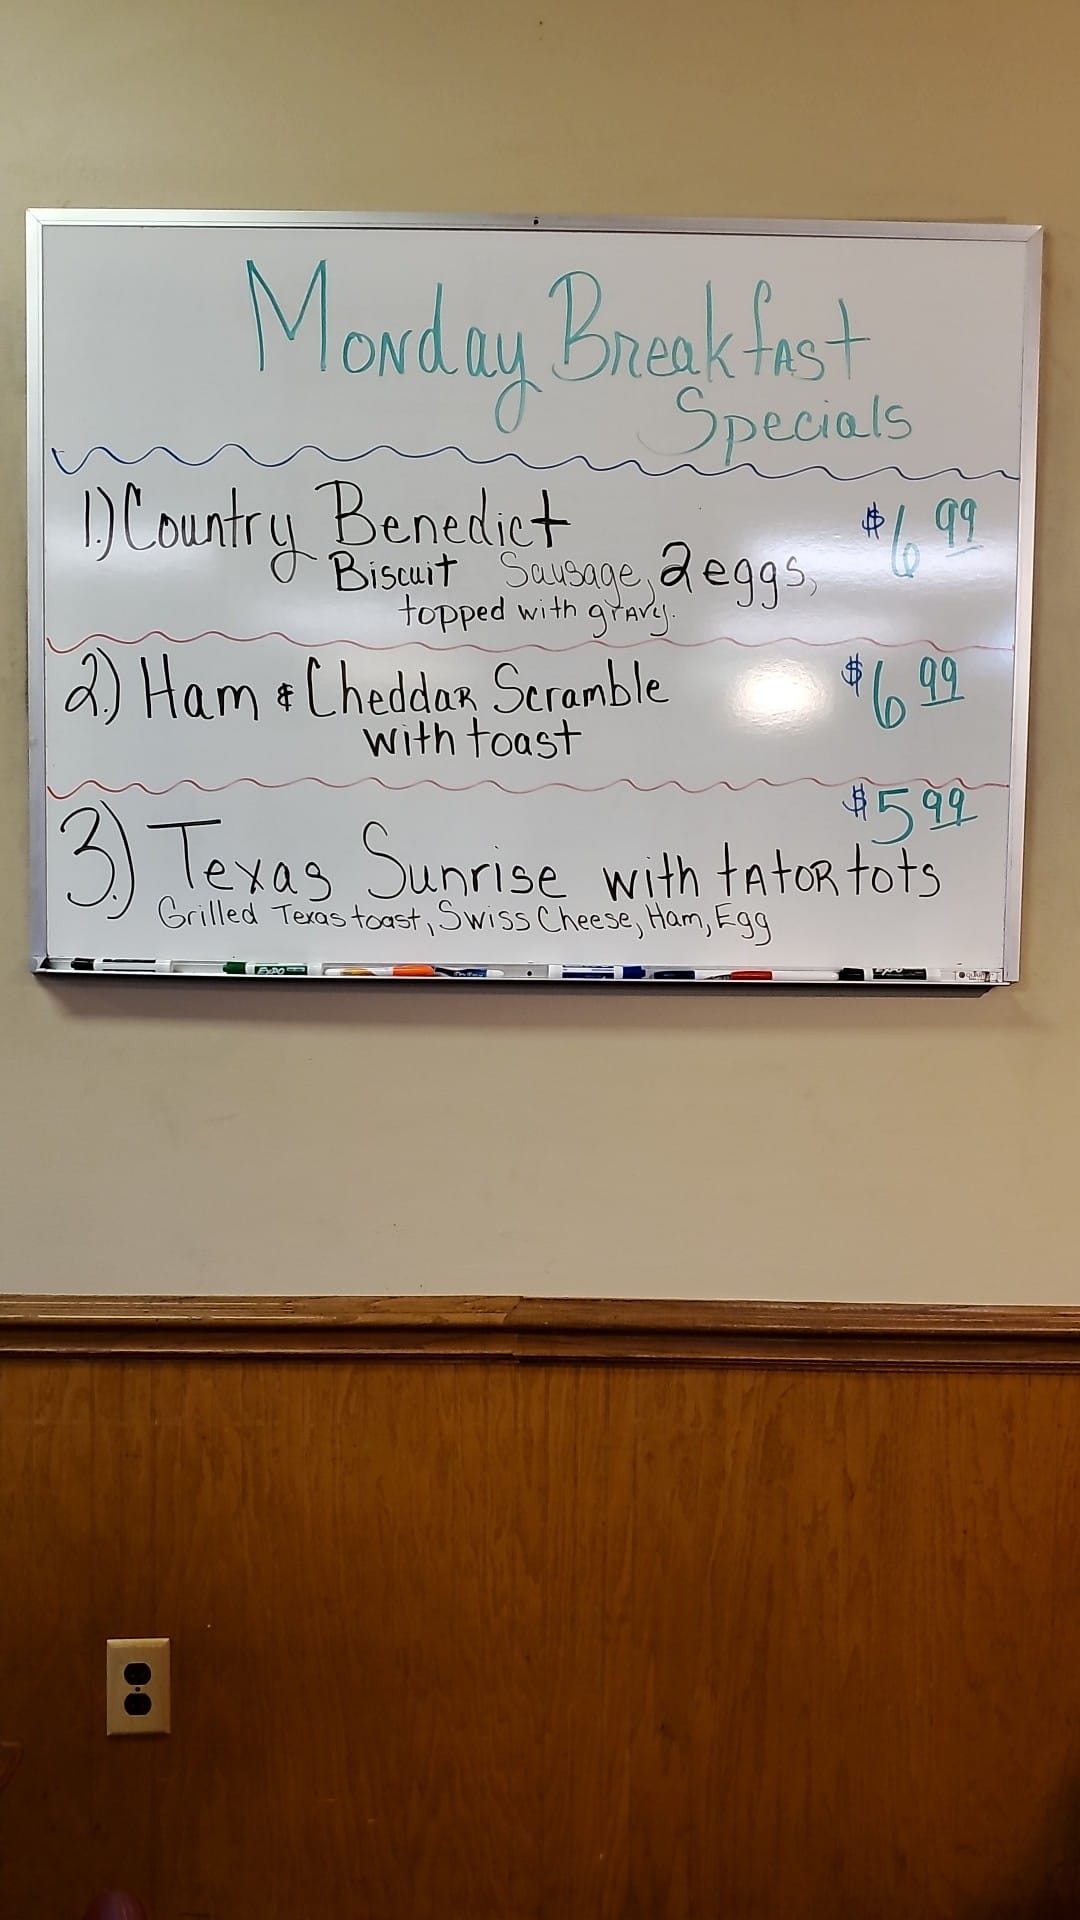 Monday Breakfast
Specials
1.) Country Benedict $6 99
Biscuit Sausage, 2 eggs,
topped with gravy.
2.) Ham & Cheddar Scramble $6 99
with toast
$5 99
3.) Texas Sunrise with tator tots
Grilled Texas toast, Swiss Cheese, Ham, Egg
EXPO